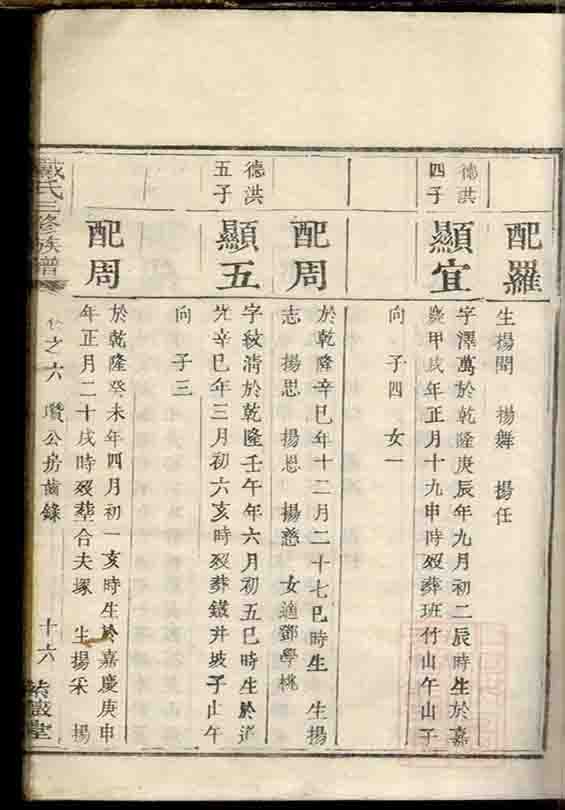 配羅
生揚聞 揚舞 揚任
德洪
四子
顯宜
字澤萬於乾隆庚辰年九月初二辰時生於嘉
慶甲戌年正月十九申時歿葬班竹山午山子
向 子四 女一
配周
於乾隆辛巳年十二月二十七巳時生 生揚
志 揚思 揚恩 揚慈 女適鄧學桃
德洪
五子
顯五
字紋清於乾隆壬午年六月初五巳時生於道
光辛巳年三月初六亥時歿葬鐵井坡子山午
向 子三
配周
於乾隆癸未年四月初一亥時生於嘉慶庚申
年正月二十戌時歿塟合夫塚 生揚采 揚
戴氏三修族譜
卷之六 瓚公房齒錄
十六
堂